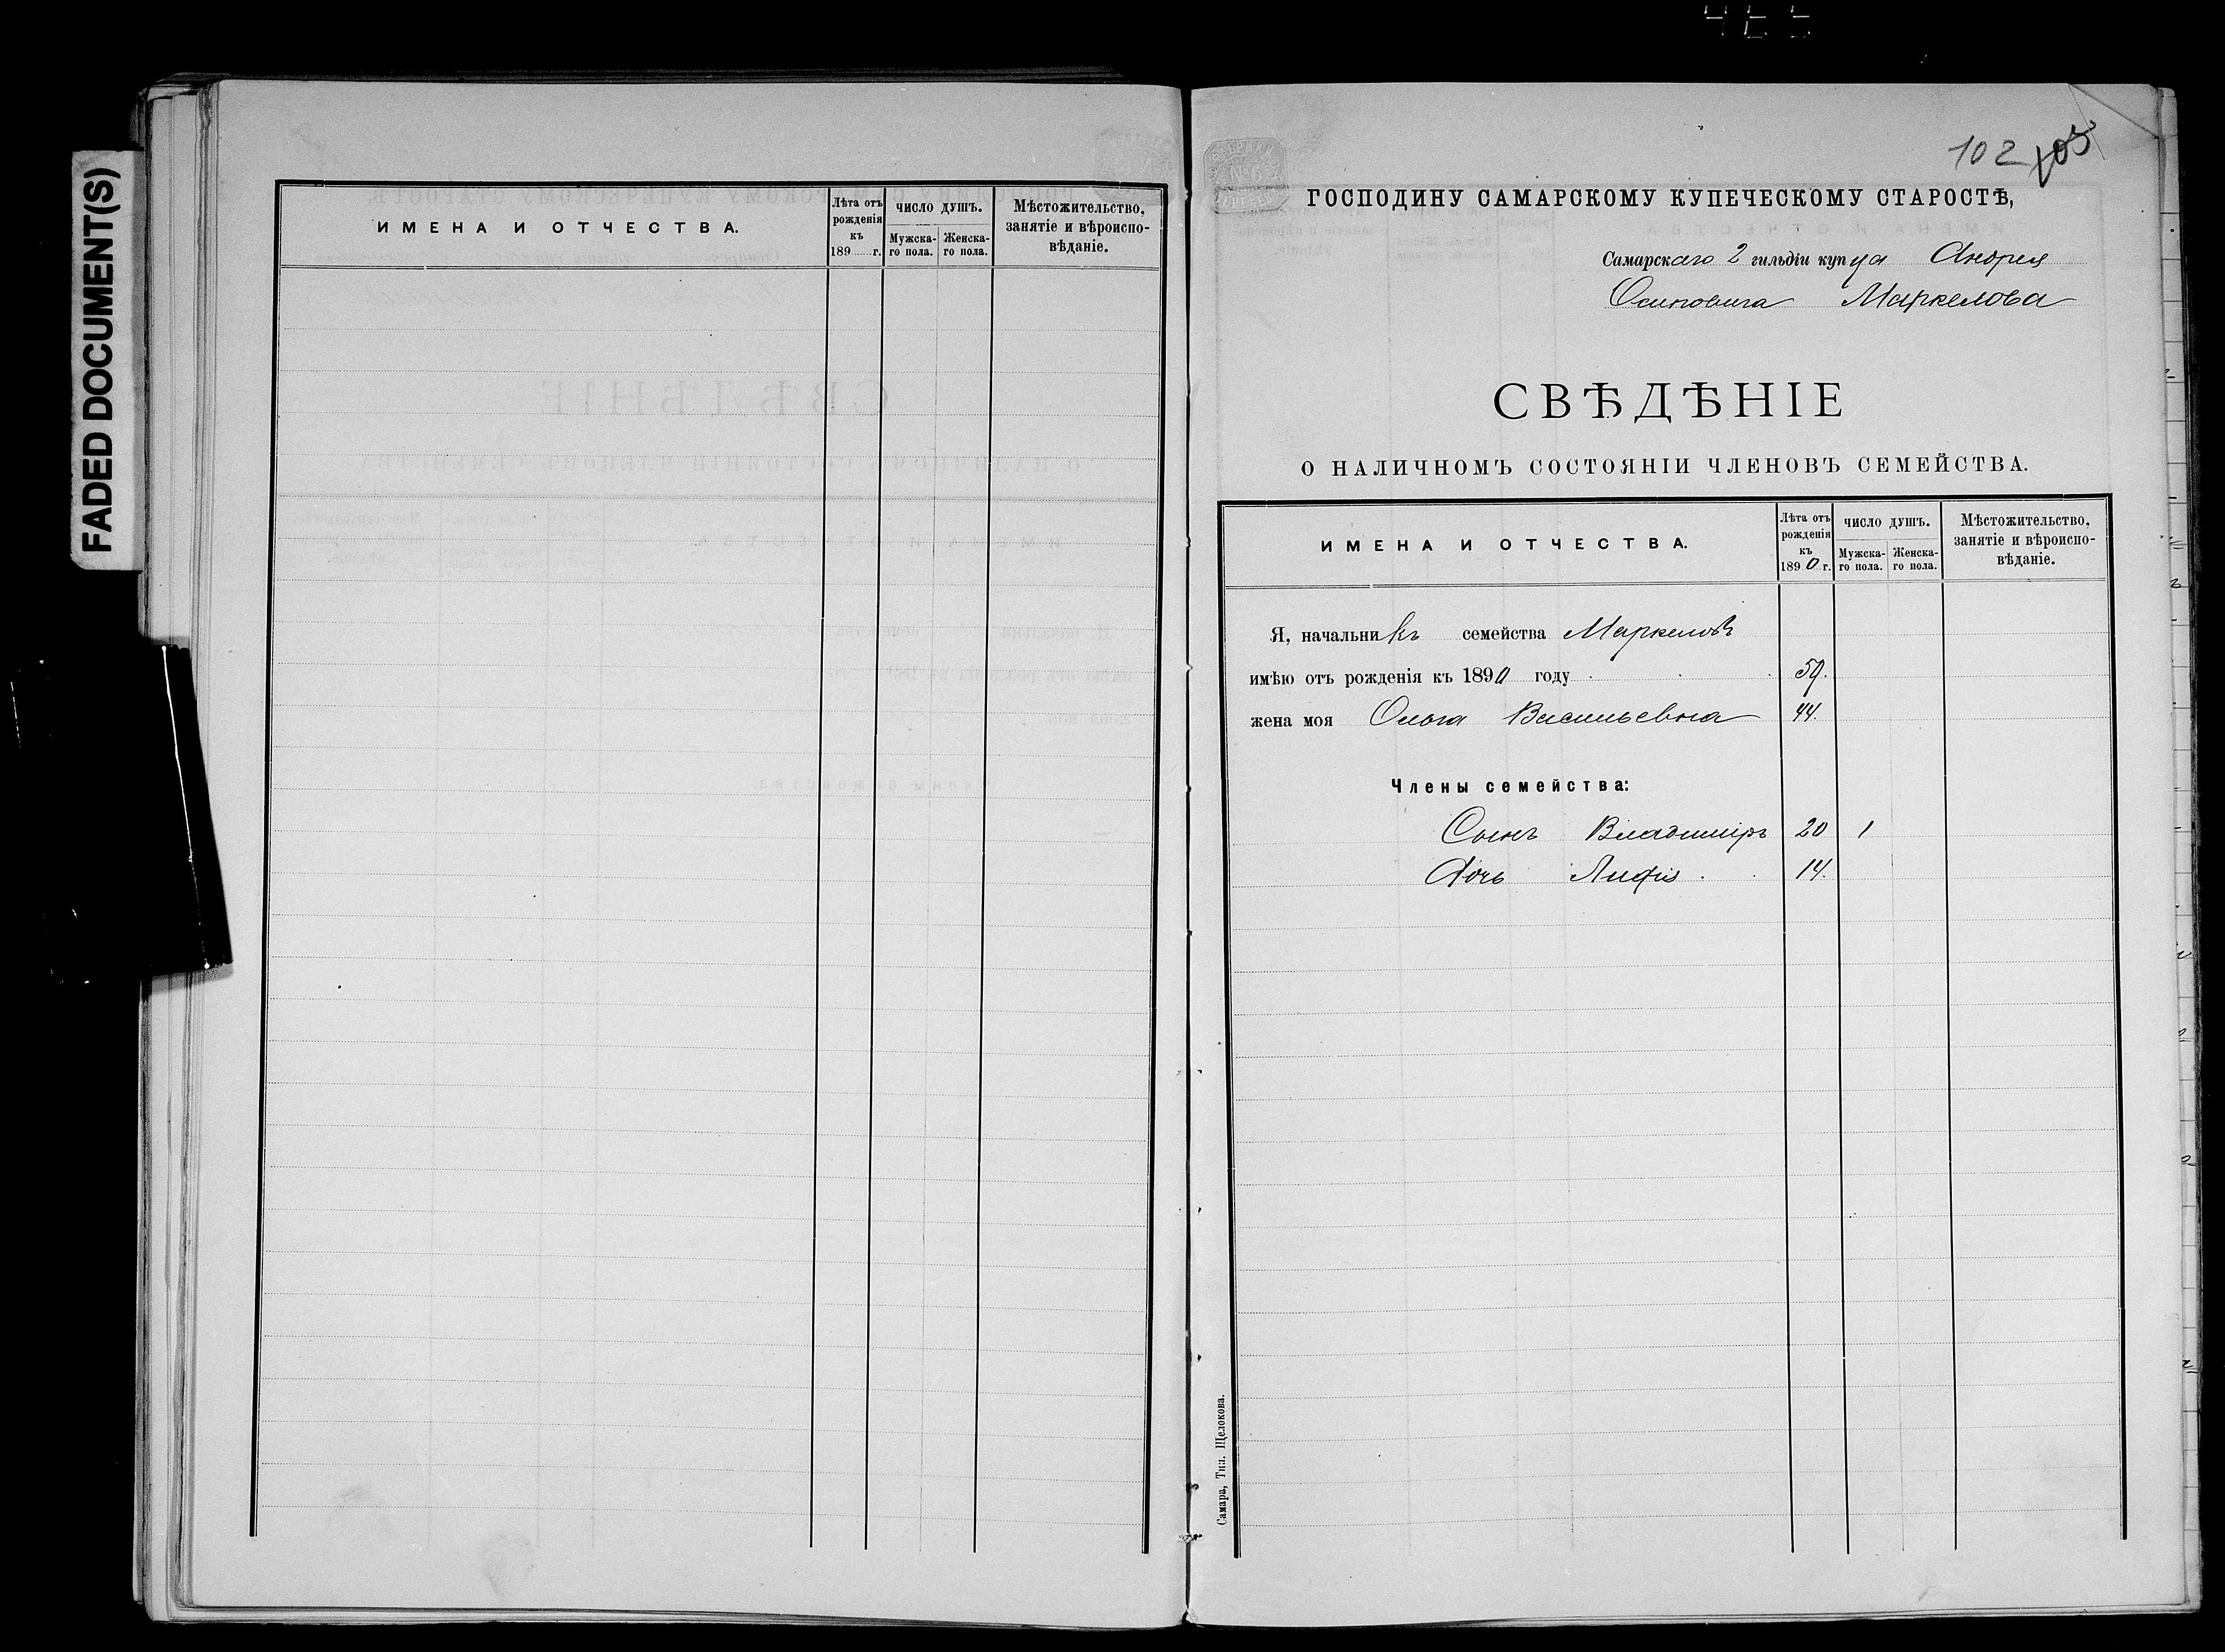 FADED DOCUMENT(S)
ИМЕНА И ОТЧЕСТВА.
Лѣта отъ рожденія къ 189 г.
ЧИСЛО ДУШЪ.
Мужска-го пола.
Женска-го пола.
Мѣстожительство, занятіе и вѣроиспо-вѣданіе.
102 103
ГОСПОДИНУ САМАРСКОМУ КУПЕЧЕСКОМУ СТАРОСТѢ,
Самарскаго 2 гильдіи купца Андрея
Осиповича Маркелова
СВѢДѢНІЕ
О НАЛИЧНОМЪ СОСТОЯНІИ ЧЛЕНОВЪ СЕМЕЙСТВА.
ИМЕНА И ОТЧЕСТВА.
Лѣта отъ рожденія къ 1890 г.
ЧИСЛО ДУШЪ.
Мужска-го пола.
Женска-го пола.
Мѣстожительство, занятіе и вѣроиспо-вѣданіе.
Я, начальникъ семейства Маркеловъ
имѣю отъ рожденія къ 1890 году 59.
жена моя Ольга Васильевна 44.
Члены семейства:
Сынъ Владиміръ 20 1
Дочь 14.
Самара, Тип. Щелокова.